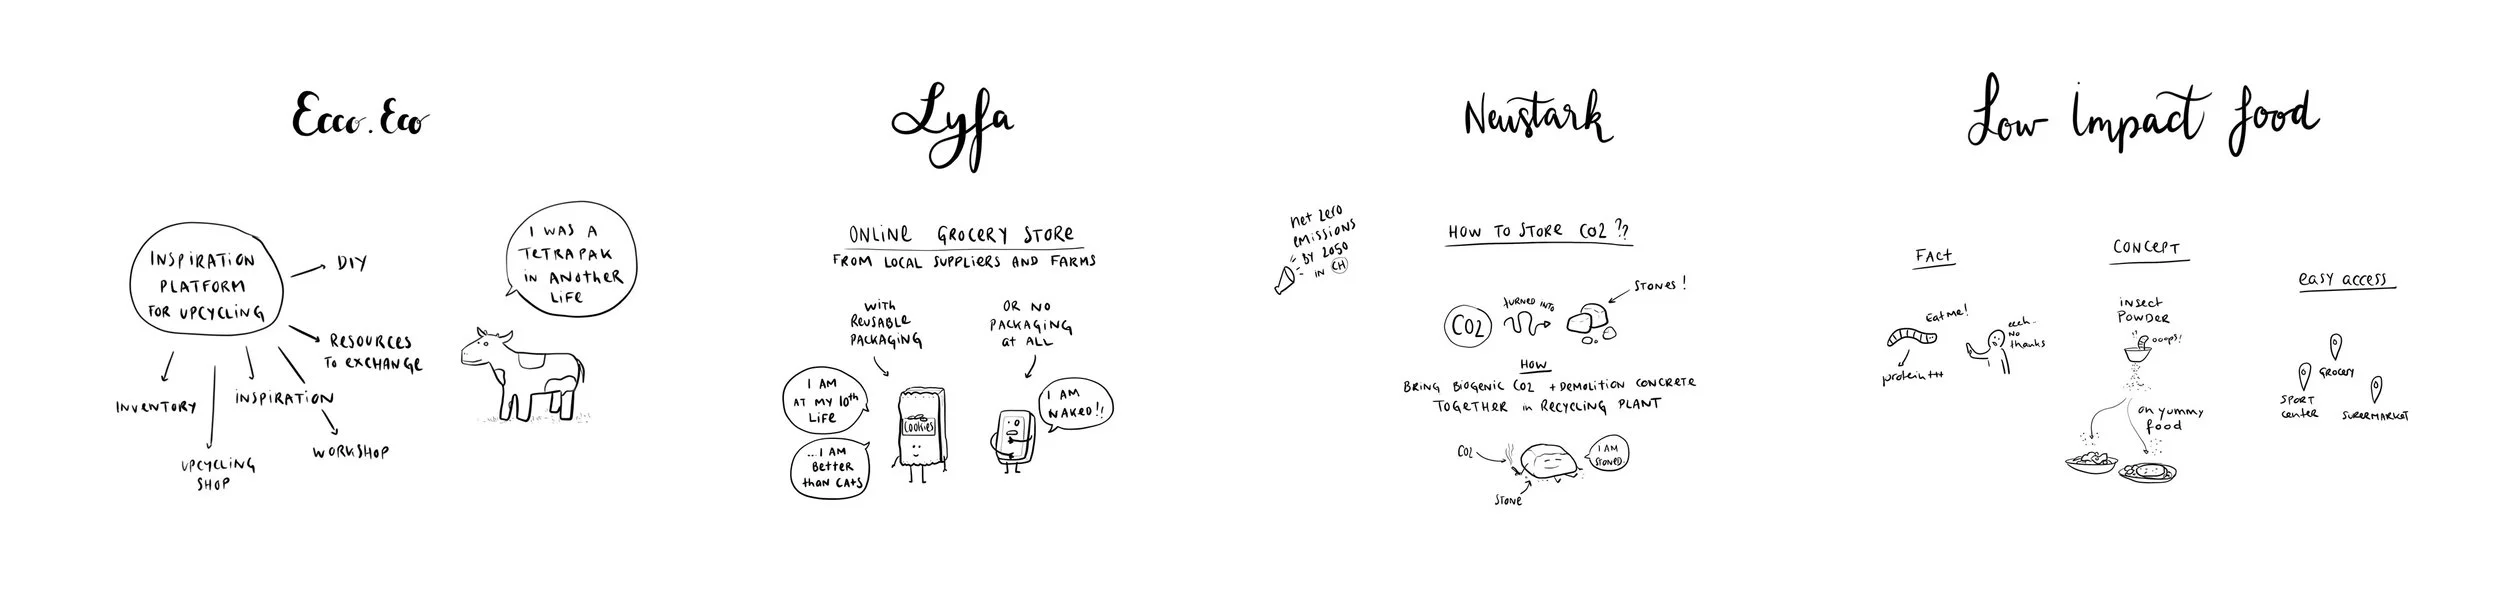 Ecco.Eco
INSPIRATION
PLATFORM
FOR UPCYCLING
DIY
RESOURCES
TO EXCHANGE
WORKSHOP
INSPIRATION
UPCYCLING
SHOP
INVENTORY
I WAS A
TETRAPAK
in ANOTHER
LIFE
Lyfa
ONLINE GROCERY STORE
FROM LOCAL SUPPLIERS AND FARMS
with
REUSABLE
PACKAGING
OR NO
PACKAGING
at ALL
I AM
AT MY 10th
LIFE
...I AM
BETTER
than CATS
COOKIES
I AM
NAKED!!
Neustark
net zero
emissions
BY 2050
IN CH
HOW TO STORE CO2 ??
CO2
TURNED INTO
STONES!
HOW
BRING BIOGENIC CO2 + DEMOLITION CONCRETE
TOGETHER in RECYCLING PLANT
CO2
STONE
I AM
STONED
Low Impact food
FACT
Eat me!
protein +++
eeeh..
NO
thanks
CONCEPT
insect
POWDER
ooops!
on yummy
food
easy access
GROCERY
SPORT
center
SUPERMARKET